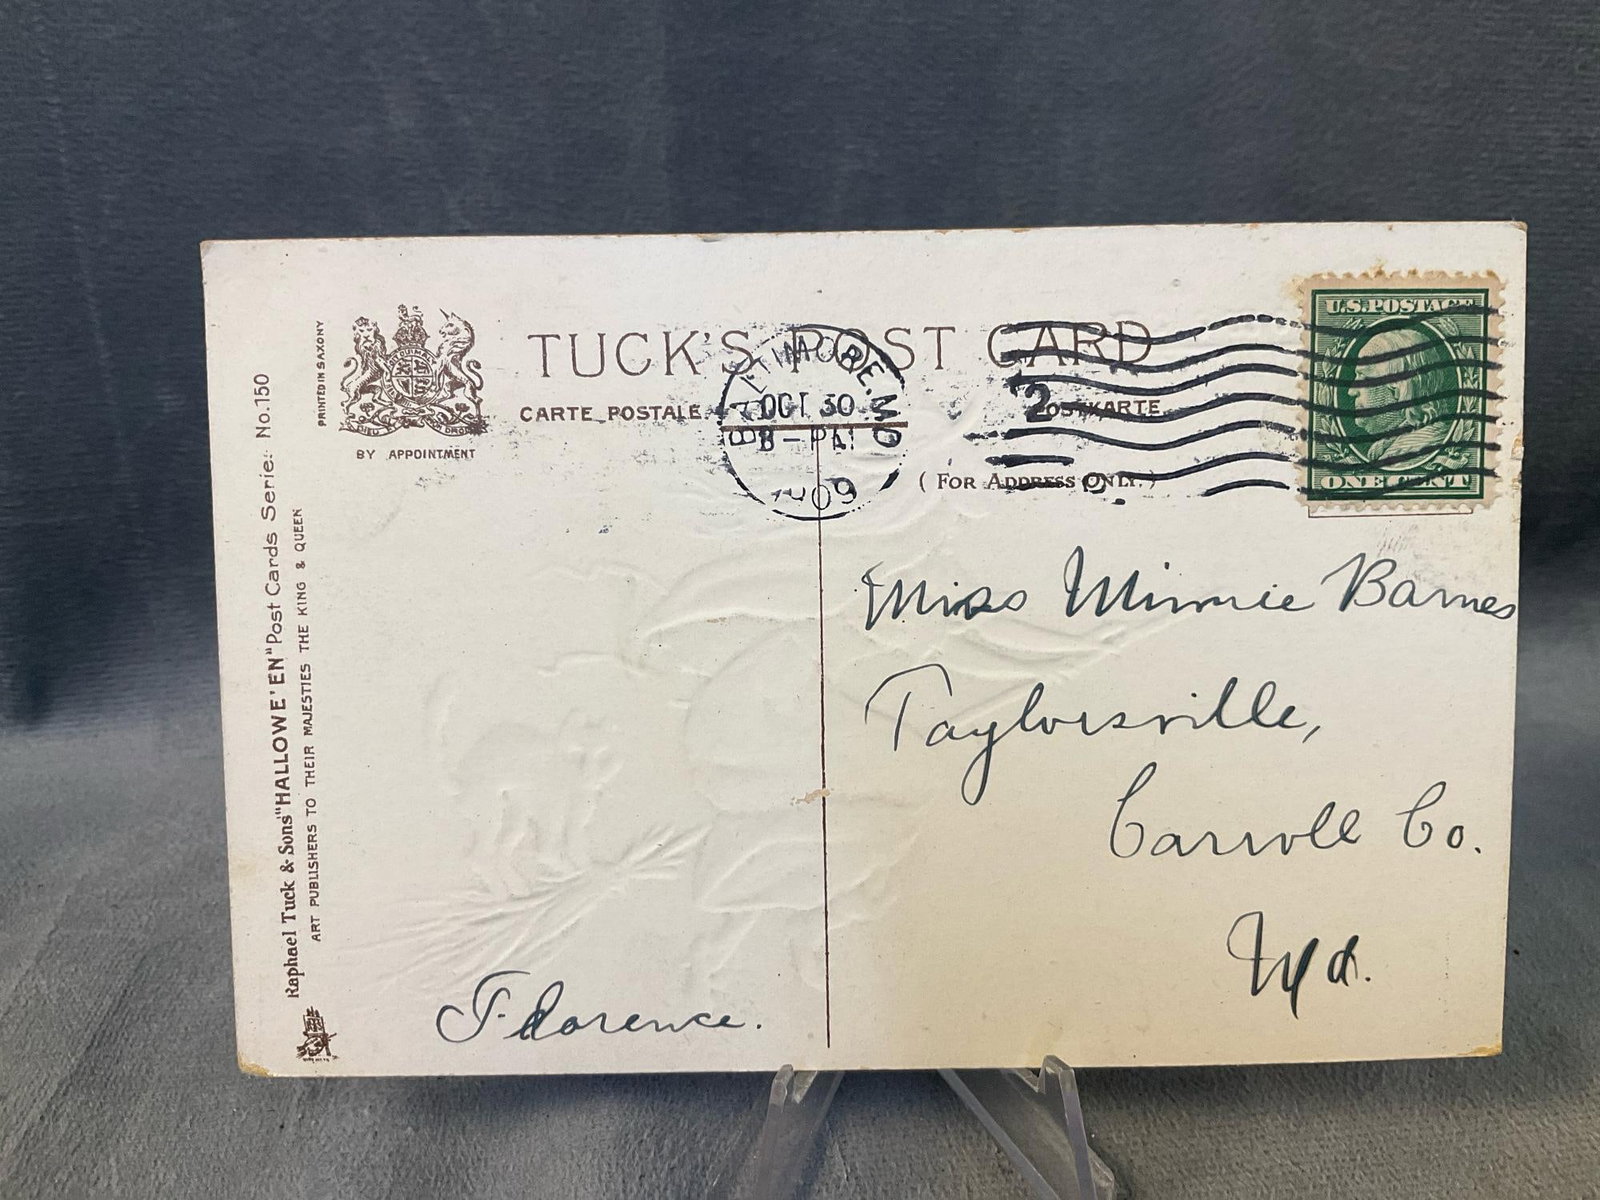 PRINTED IN SAXONY
BY APPOINTMENT
TUCK'S POST CARD
CARTE POSTALE
POSTKARTE
(FOR ADDRESS ONLY.)
BALTIMORE, MD
OCT 30
8-PM
1909
2
U.S. POSTAGE
ONE CENT
Raphael Tuck & Sons "HALLOWE'EN" Post Cards Series No. 150
ART PUBLISHERS TO THEIR MAJESTIES THE KING & QUEEN
Miss Minnie Barnes
Taylorsville,
Carroll Co.
Md.
Florence.